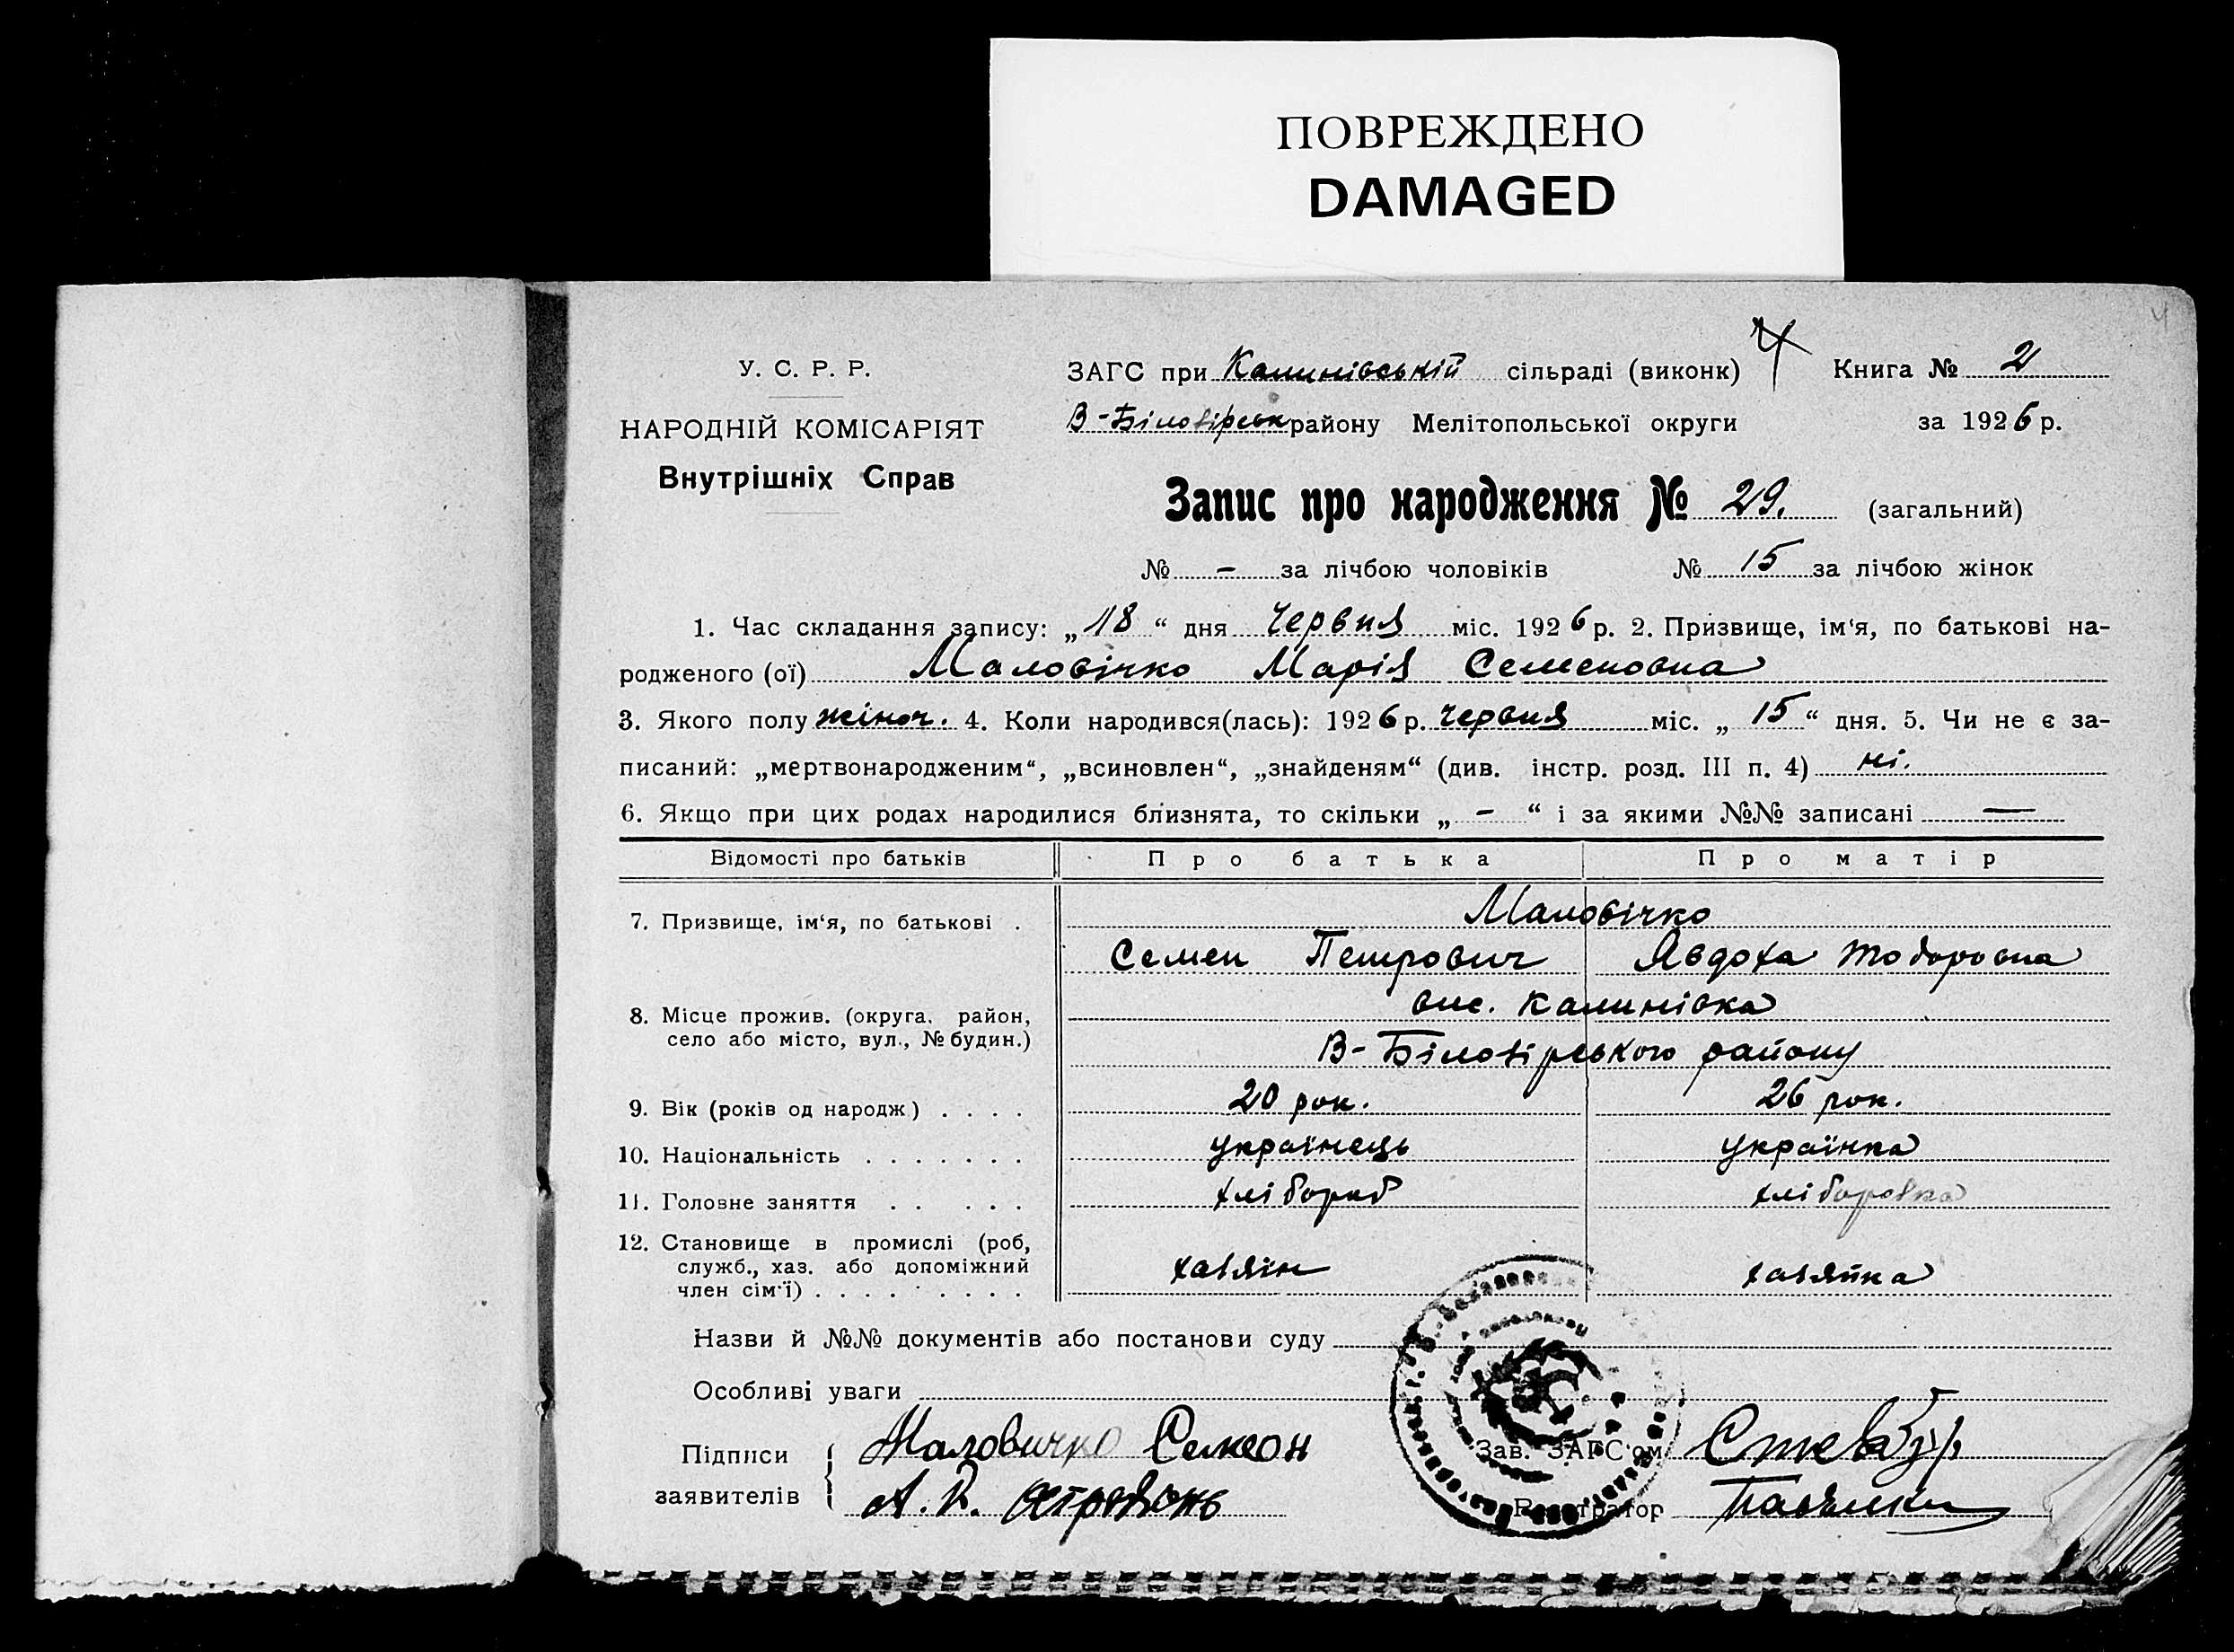 ПОВРЕЖДЕНО
DAMAGED
4
У. С. Р. Р.
НАРОДНІЙ КОМІСАРІЯТ
Внутрішніх Справ
ЗАГС при Калинівській сільраді (виконк) 4 Книга № 2
В-Білозірськ району Мелітопольської округи за 1926 р.
Запис про народження № 29. (загальний)
№ - за лічбою чоловіків № 15 за лічбою жінок
1. Час складання запису: „18“ дня Червня міс. 1926 р. 2. Призвище, ім'я, по батькові на-
родженого (ої) Маловічко Марія Семеновна
3. Якого полу жіноч. 4. Коли народився(лась): 1926 р. червня міс. „15“ дня. 5. Чи не є за-
писаний: „мертвонародженим“, „всиновлен“, „знайденям“ (див. інстр. розд. III п. 4) ні.
6. Якщо при цих родах народилися близнята, то скільки „ - “ і за якими №№ записані —
Відомості про батьків Про батька Про матір
7. Призвище, ім'я, по батькові . Маловічко
Семен Петрович Явдоха Тодоровна
8. Місце прожив. (округа, район, вис. Калинівка
село або місто, вул., № будин.) В-Білозірського району
9. Вік (років од народж) . . . . 20 рок. 26 рок.
10. Національність . . . . . . . українець українка
11. Головне заняття . . . . . хлібороб хліборобка
12. Становище в промислі (роб,
служб., хаз. або допоміжний хазяїн хазяйка
член сім'ї) . . . . . . . . .
Назви й №№ документів або постанови суду
Особливі уваги
Підписи Маловичко Семеон Зав. ЗАГС'ом
заявителів А. К. Реєстратор